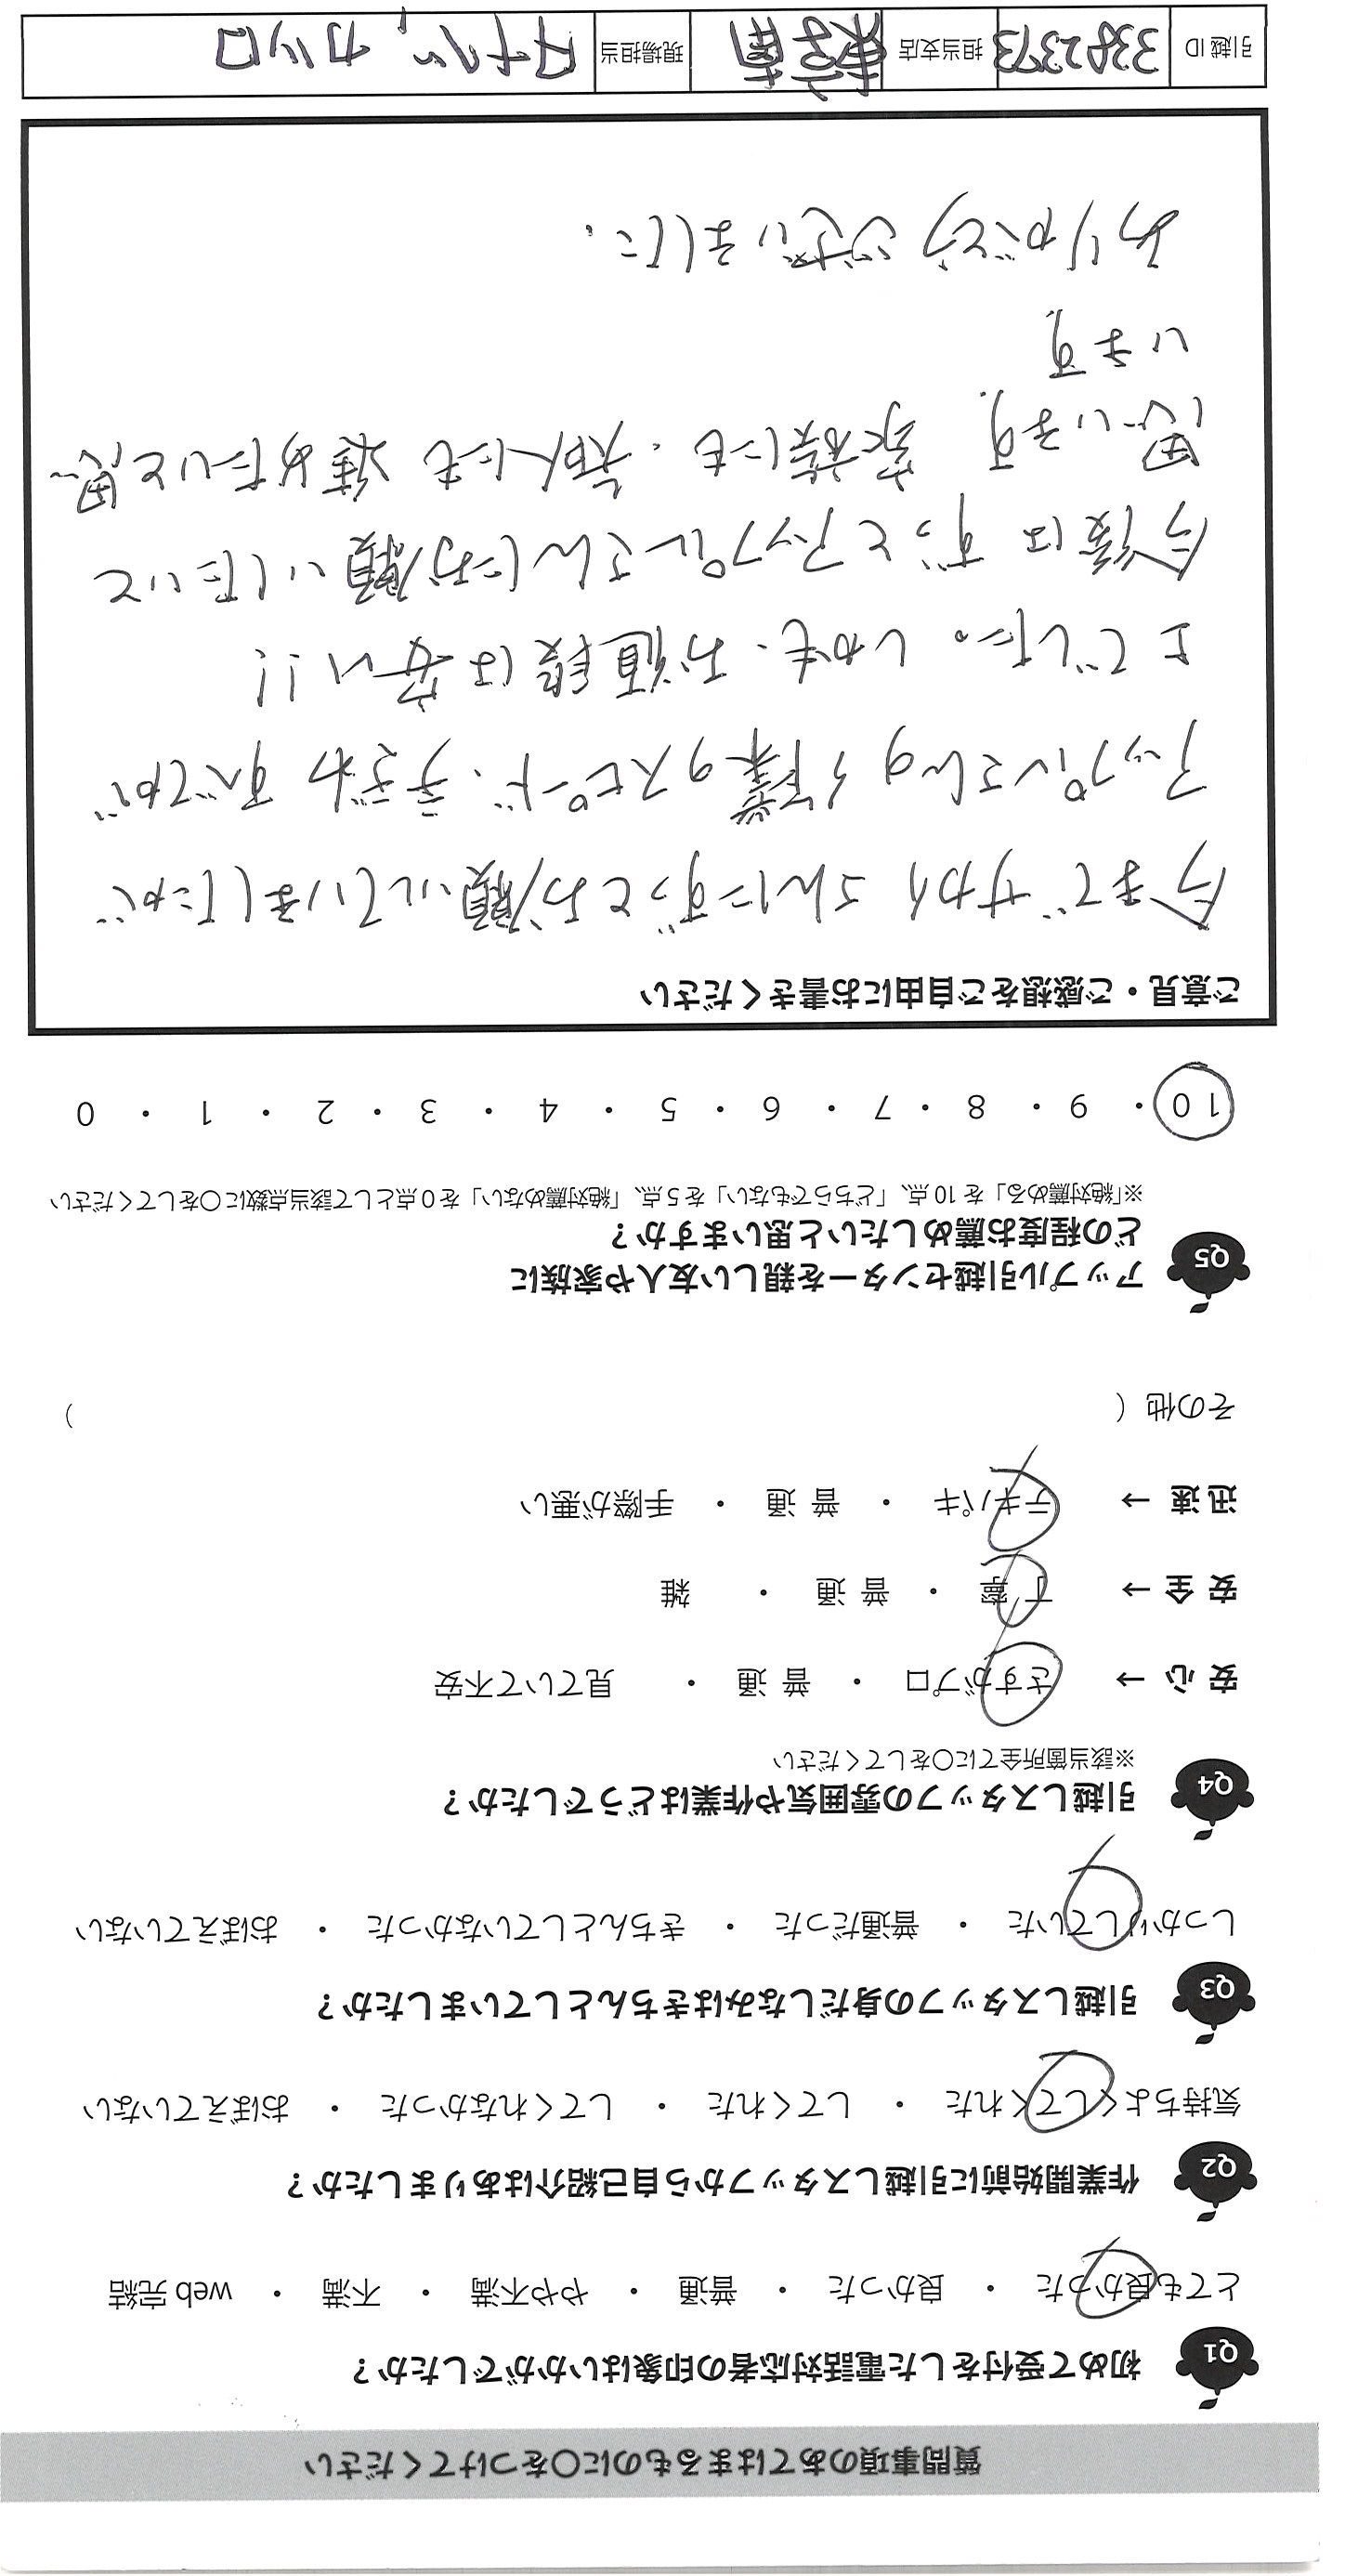 質問事項のあてはまるものに〇をつけてください
Q1 初めて受付をした電話対応者の印象はいかがでしたか?
とても良かった ・ 良かった ・ 普通 ・ やや不満 ・ 不満 ・ web 完結
Q2 作業開始前に引越しスタッフから自己紹介はありましたか?
気持ちよくしてくれた ・ してくれた ・ してくれなかった ・ おぼえていない
Q3 引越しスタッフの身だしなみはきちんとしていましたか?
しっかりしていた ・ 普通だった ・ きちんとしていなかった ・ おぼえていない
Q4 引越しスタッフの雰囲気や作業はどうでしたか?
※該当箇所全てに〇をしてください
安心 → さすがプロ ・ 普通 ・ 見ていて不安
安全 → 丁寧 ・ 普通 ・ 雑
迅速 → テキパキ ・ 普通 ・ 手際が悪い
その他 ( )
Q5 アップル引越センターを親しい友人や家族に
どの程度お薦めしたいと思いますか?
※「絶対薦める」を 10 点、「どちらでもない」を 5 点、「絶対薦めない」を 0 点として該当点数に〇をしてください
10 ・ 9 ・ 8 ・ 7 ・ 6 ・ 5 ・ 4 ・ 3 ・ 2 ・ 1 ・ 0
ご意見・ご感想をご自由にお書きください
今まで サカイ さんにずっとお願いしていましたが
アップルさんの作業のスピード、手ぎわ すべてが
上でした。しかも、お値段は安い!!
今後は ずっとアップルさんにお願いしたいと
思います。家族にも、知人にも 進めたいと思
います
ありがとう ございました、
引越 ID 3382373 担当支店 東京南 現場担当 タナベ, カツロ